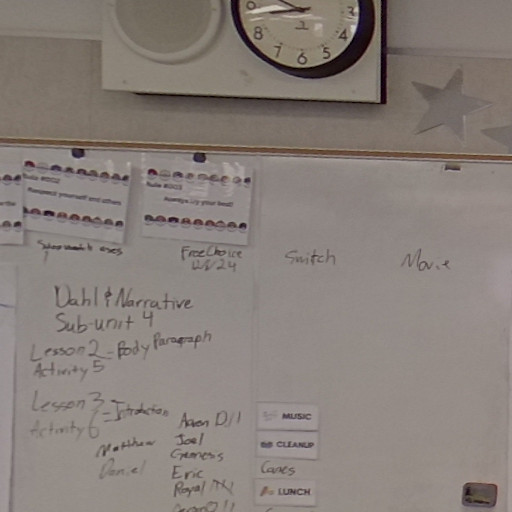 9 3
8 4
7 6 5
Rule #002
Respect yourself and others
Rule #003
Always try your best!
Free Choice
Switch
Movie
Dahl & Narrative
Sub-unit 4
Lesson 2 - Body Paragraph
Activity 5
Lesson 3 - Introduction
Activity 6
Matthew
Daniel
Aaron D.
Joel
Genesis
Eric
Royal
MUSIC
CLEANUP
Canes
LUNCH